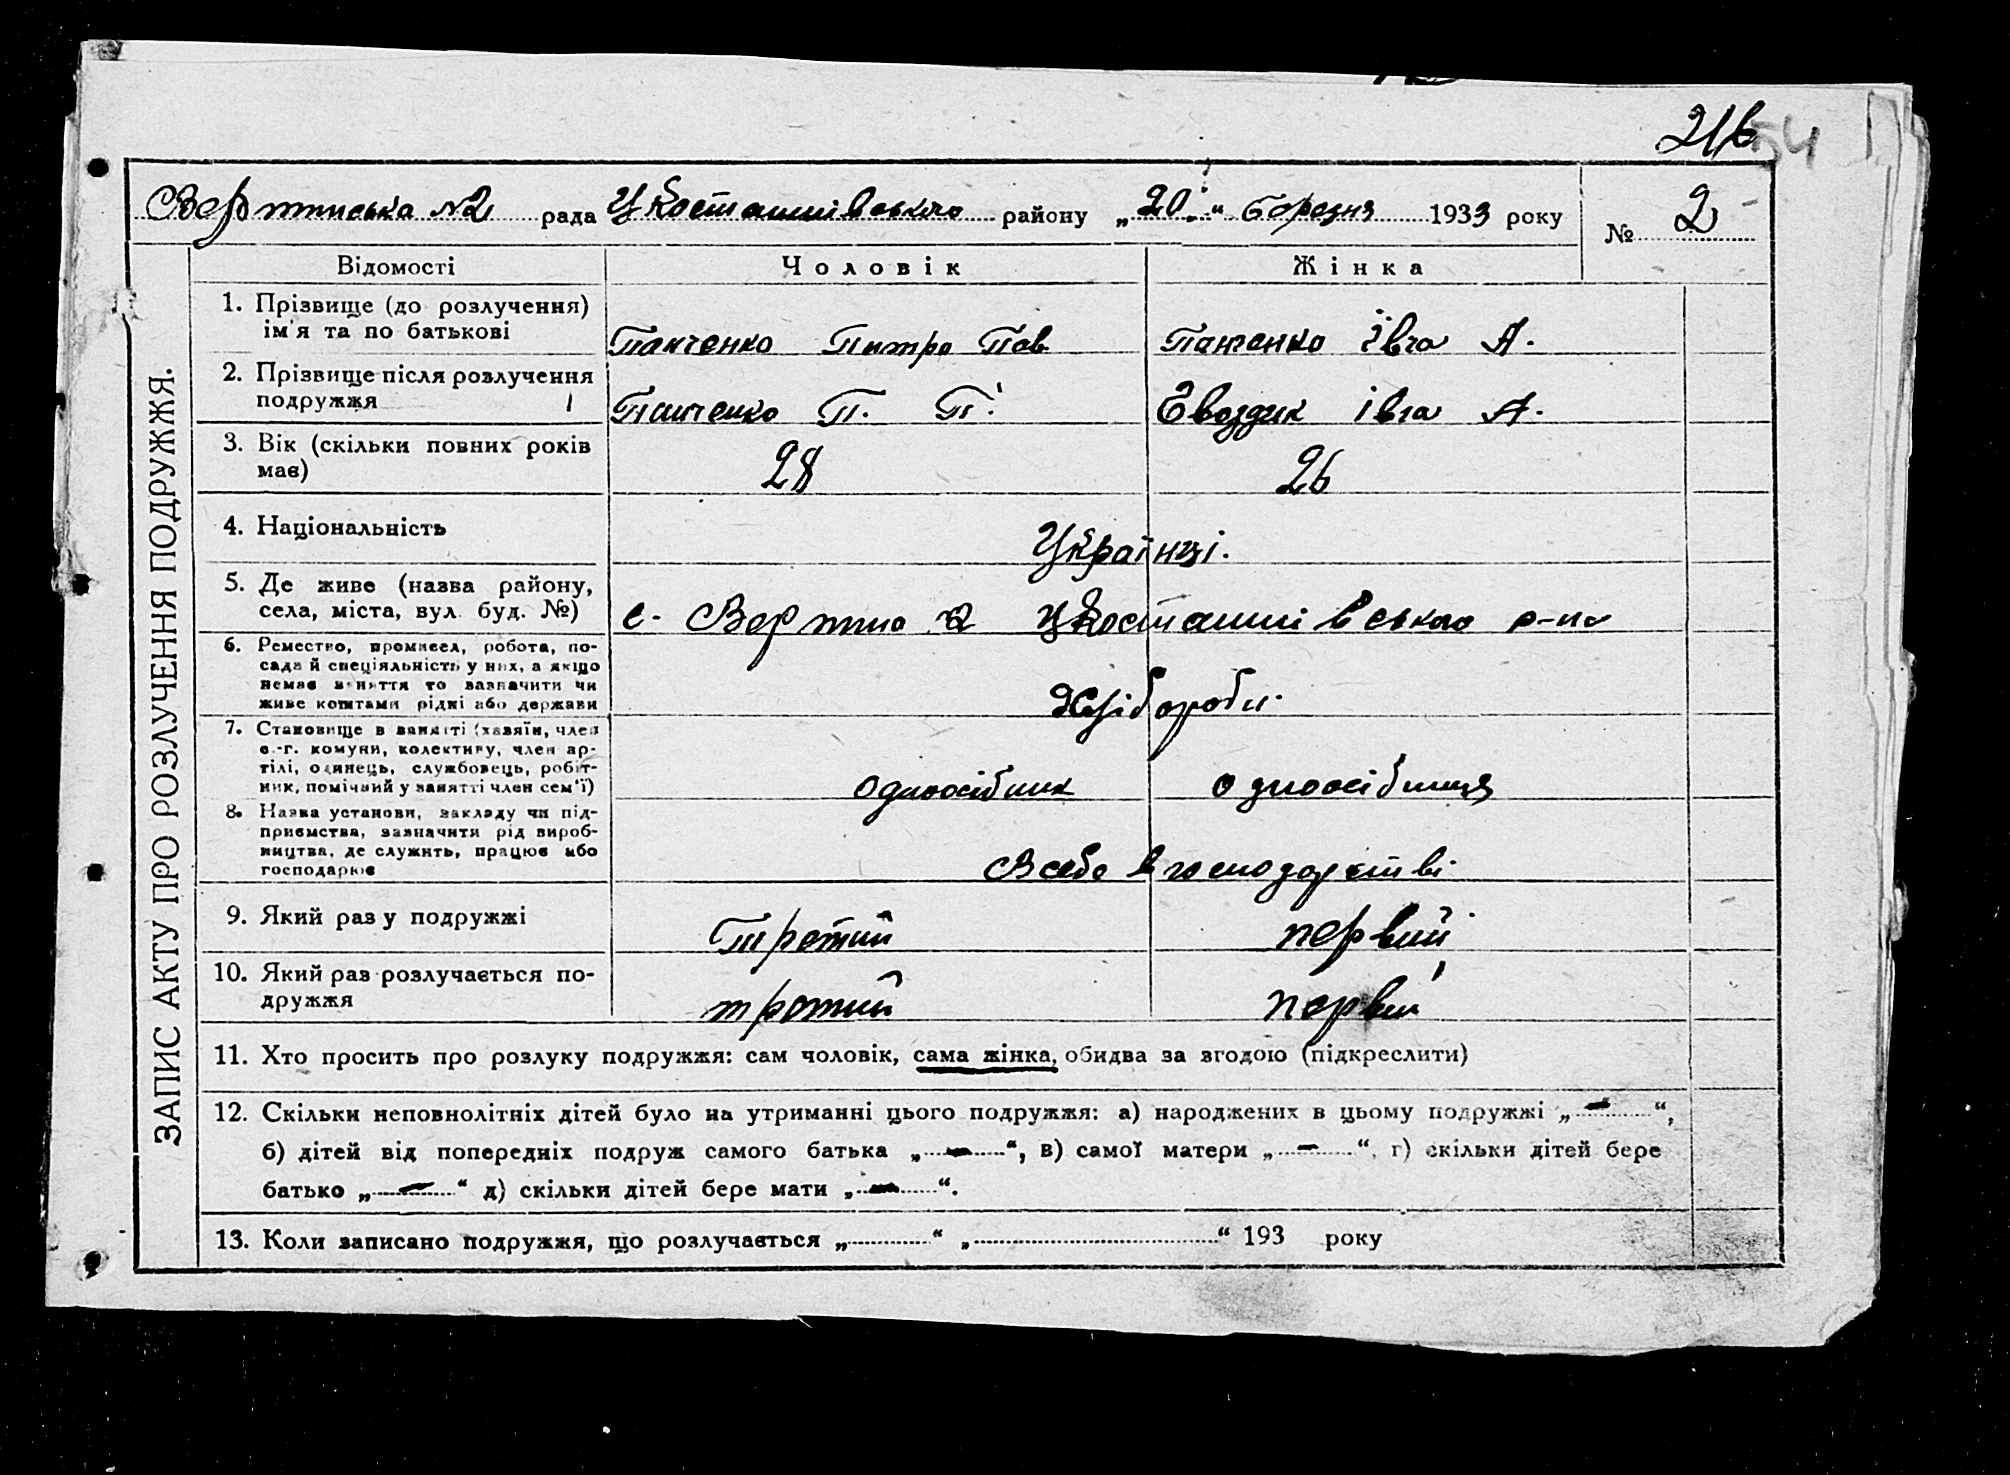 216 54
рада району „20“ березня 1933 року
№ 2
ЗАПИС АКТУ ПРО РОЗЛУЧЕННЯ ПОДРУЖЖЯ.
Відомості Чоловік Жінка
1. Прізвище (до розлучення)
ім'я та по батькові
Панченко Питро Пав Панченко Івга А.
2. Прізвище після розлучення
подружжя
Панченко П. П. Гвоздик івга А.
3. Вік (скільки повних років
має)
28 26
4. Національність
Українці.
5. Де живе (назва району,
села, міста, вул. буд. №)
с. 2 р-на
6. Ремество, промисел, робота, по-
сада й спеціяльність у них, а якщо
немає заняття то зазначити чи
живе коштами рідні або держави
Хліборобы.
7. Становище в занятті (хазяїн, член
с.-г. комуни, колективу, член ар-
тілі, одинець, службовець, робіт-
ник, помічний у занятті член сем'ї)
одноосібник одноосібниця
8. Назва установи, закладу чи під-
приємства, зазначити рід вироб-
ництва, де служить, працює або
господарює
В себе в господарстві
9. Який раз у подружжі
Третий первий
10. Який раз розлучається по-
дружжя
третий первий
11. Хто просить про розлуку подружжя: сам чоловік, сама жінка, обидва за згодою (підкреслити)
12. Скільки неповнолітніх дітей було на утриманні цього подружжя: а) народжених в цьому подружжі „—“,
б) дітей від попередніх подруж самого батька „—“, в) самої матери „—“, г) скільки дітей бере
батько „—“ д) скільки дітей бере мати „—“.
13. Коли записано подружжя, що розлучається „ “ „ “ 193 року